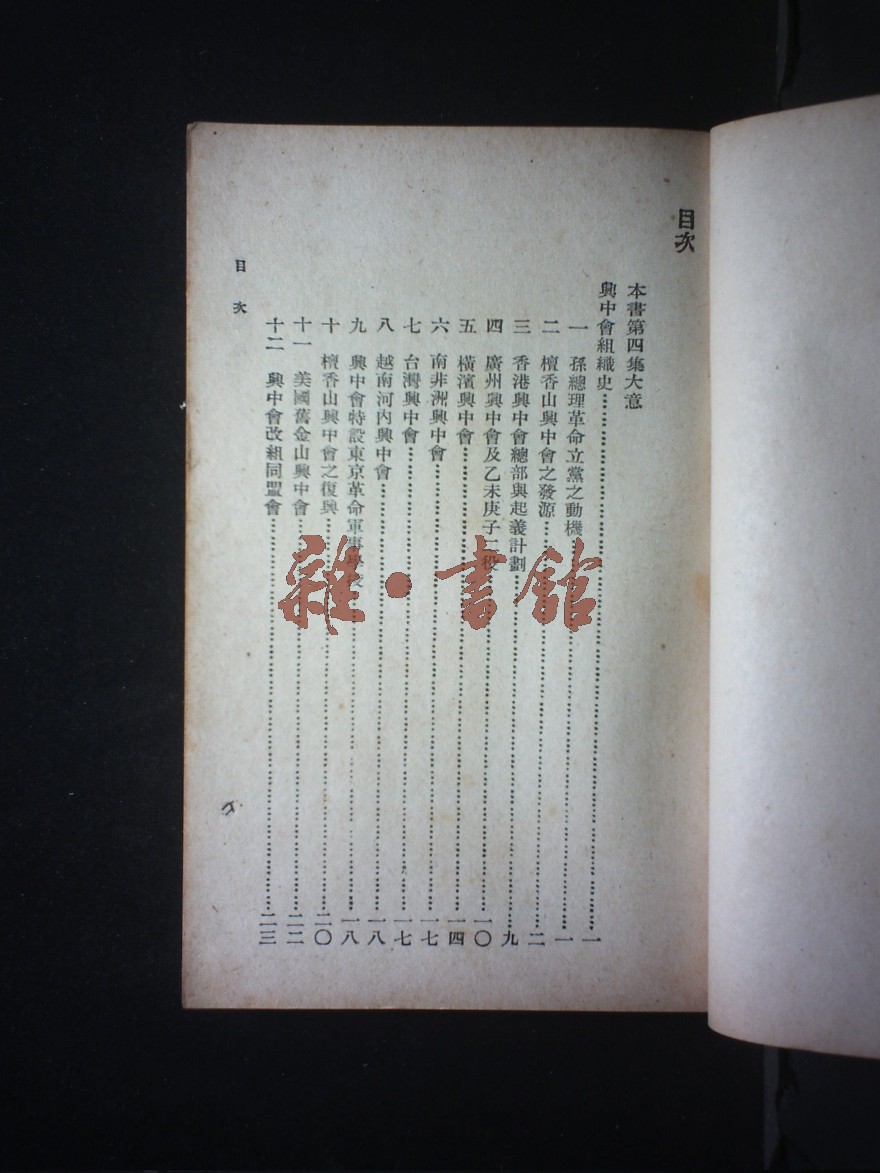 目次
本書第四集大意
興中會組織史……一
一 孫總理革命立黨之動機……一
二 檀香山興中會之發源……二
三 香港興中會總部與起義計劃……九
四 廣州興中會及乙未庚子二役……一〇
五 橫濱興中會……一四
六 南非洲興中會……一七
七 台灣興中會……一七
八 越南河內興中會……一八
九 興中會特設東京革命軍事學校……一八
十 檀香山興中會之復興……二〇
十一 美國舊金山興中會……二二
十二 興中會改組同盟會……二三
目次
雜·書館